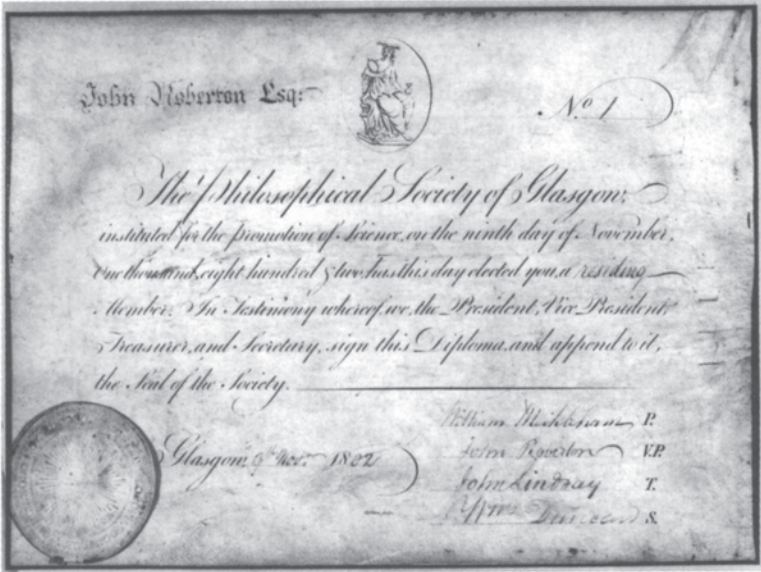 John Roberton Esq:
No 1
The Philosophical Society of Glasgow,
instituted for the promotion of Science, on the ninth day of November,
One thousand, eight hundred & two, has this day elected you, a residing
Member. In Testimony whereof, we, the President, Vice President,
Treasurer, and Secretary, sign this Diploma, and append to it,
the Seal of the Society.
William P.
John Roberton V.P.
Glasgow, 9th Novr. 1802
John Lindsay T.
Wm Duncan S.